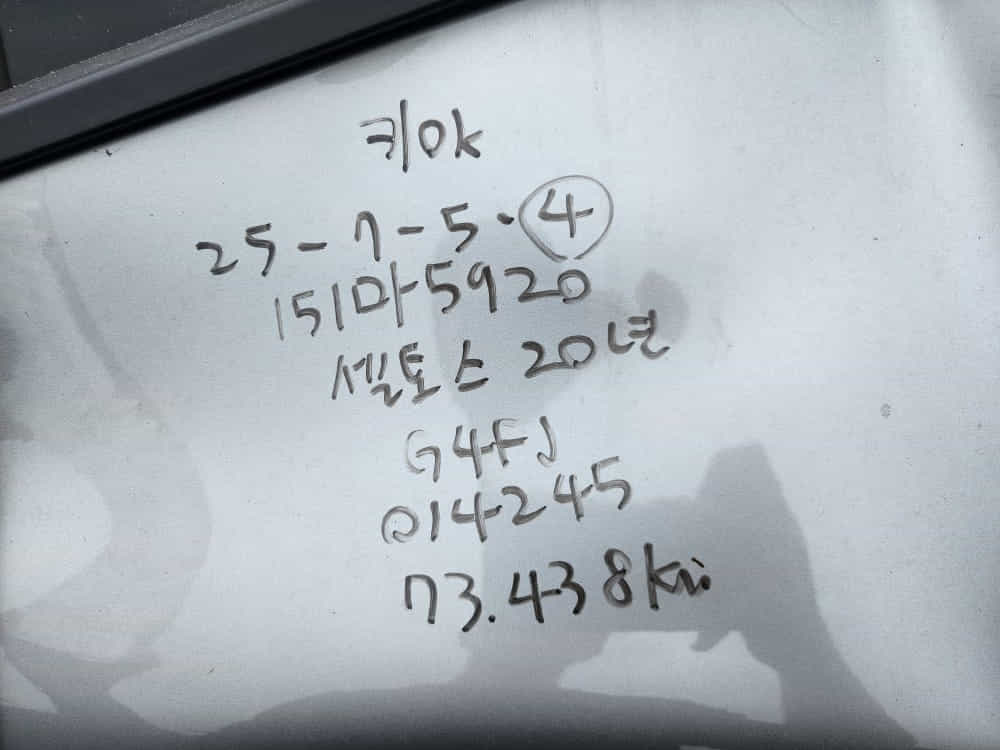 키OK
25-7-5.④
151마5920
셀토스 20년
G4FJ
014245
73.438km